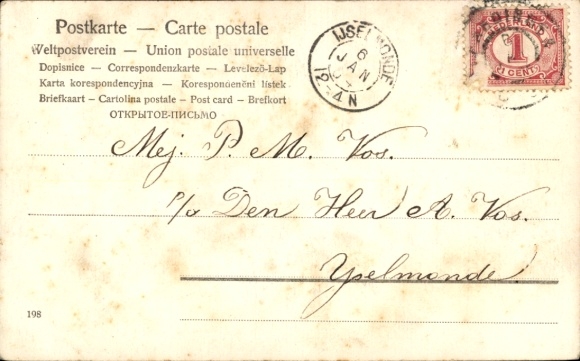 Postkarte — Carte postale
Weltpostverein — Union postale universelle
Dopisnice — Correspondenzkarte — Levelező-Lap
Karta korespondencyjna — Korespondenční lístek
Briefkaart — Cartolina postale — Post card — Brefkort
ОТКРЫТОЕ-ПИСЬМО
IJSELMONDE
6
JAN
12-4N
NEDERLAND
1
CENT
Mej. P. M. Vos.
p/a Den Heer A. Vos.
Yselmonde.
198